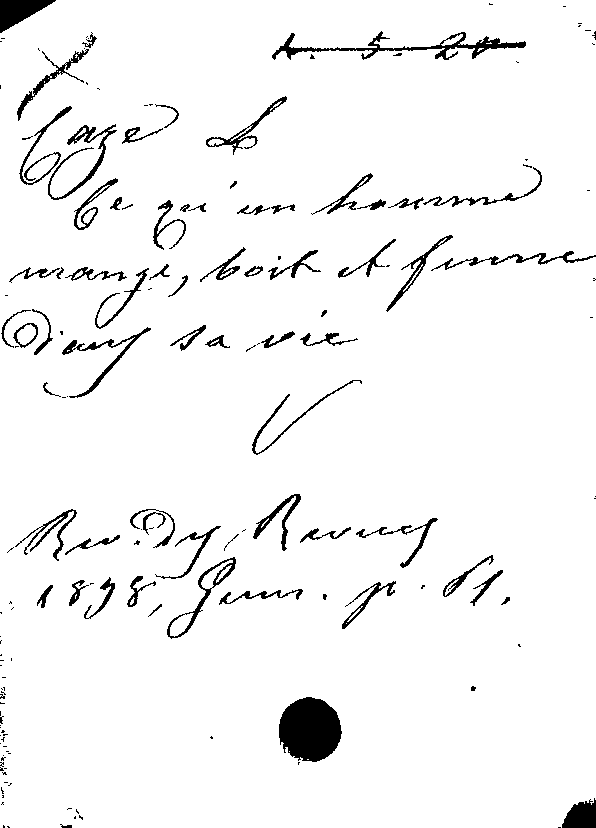 A. 5. 20
Caze L
Ce qu'un homme
mange, boit et fume
dans sa vie
V
Rev. des Revues
1898, Janv. p. 61.